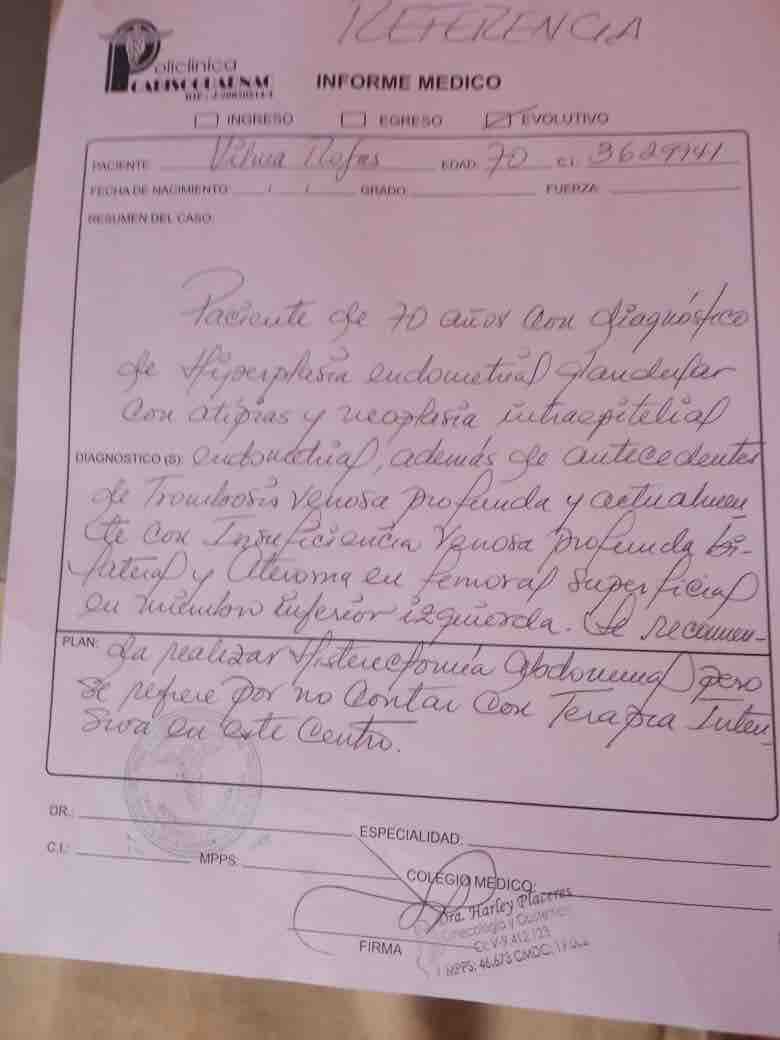 REFERENCIA
Policlínica
CABISOGUARNAC
INFORME MEDICO
INGRESO EGRESO EVOLUTIVO
PACIENTE Vilma Rojas EDAD: 70 C.I. 3629941
FECHA DE NACIMIENTO / / GRADO FUERZA:
RESUMEN DEL CASO:
Paciente de 70 años con diagnóstico
de Hiperplasia endometrial glandular
con atipias y neoplasia intraepitelial
DIAGNOSTICO (S): endometrial, además de antecedentes
de Trombosis Venosa profunda y actualmen-
te con Insuficiencia Venosa profunda bi-
lateral y Ateroma en femoral superficial
en miembro inferior izquierda. Se recomien-
PLAN: da realizar Histerectomía Abdominal pero
se refiere por no contar con Terapia Inten-
siva en este Centro.
DR.: ESPECIALIDAD:
C.I.: MPPS: COLEGIO MEDICO:
Dra. Harley Placeres
Ginecología y Obstetricia
C.I: V-9.412.123
FIRMA MPPS: 46.673 CMDC: